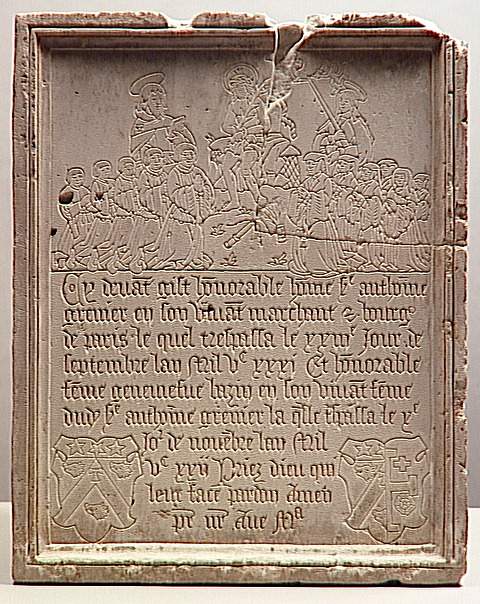 Cy devāt gist honorable hōme sʳ anthoine
grenier en son vivāt marchant & bourgˢ
de paris le quel trespassa le xxiiiᵉ jour de
septembre lan Mil vᶜ xxxi Et honorable
fēme geneviefue bazin en son vivāt fēme
dudᵗ sʳ anthoyne grenier la q̄lle tspassa le xᵉ
Joʳ de novēbre lan Mil
vᶜ xxij Priez dieu qui
leur face pardon Amen
pr̄ nr̄ ave Mᵃ